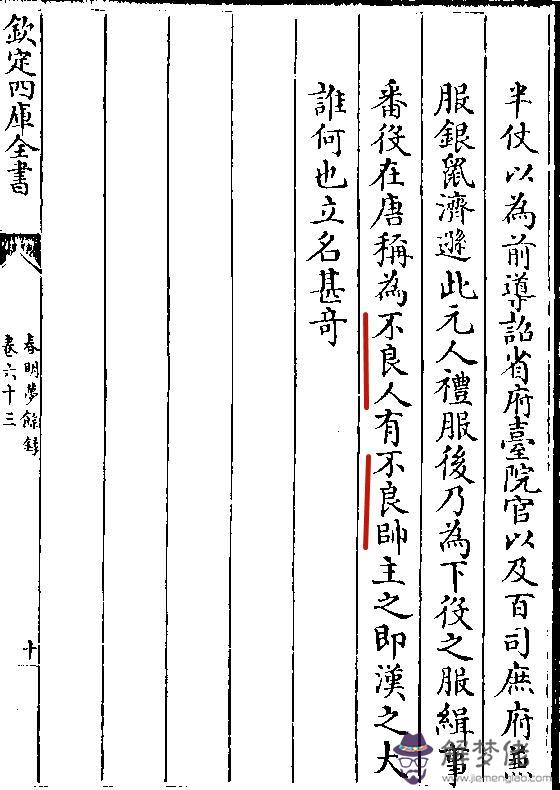 半仗以為前導詔省府臺院官以及百司庶府
服銀鼠濟遜此元人禮服後乃為下役之服緝事
番役在唐稱為不良人有不良帥主之即漢之大
誰何也立名甚奇
欽定四庫全書
春明夢餘錄
卷六十三
十
解梦佬
www.jiemenglao.com